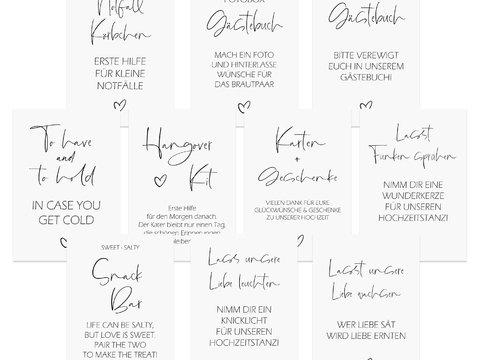 Notfall
Körbchen
ERSTE HILFE
FÜR KLEINE
NOTFÄLLE
FOTOBOX
Gästebuch
MACH EIN FOTO
UND HINTERLASSE
WÜNSCHE FÜR
DAS BRAUTPAAR
Gästebuch
BITTE VEREWIGT
EUCH IN UNSEREM
GÄSTEBUCH!
To have
and
to hold
IN CASE YOU
GET COLD
Hangover
Kit
Erste Hilfe
für den Morgen danach.
Der Kater bleibt nur einen Tag,
die schönen Erinnerungen
bleiben
Karten
+
Geschenke
VIELEN DANK FÜR EURE
GLÜCKWÜNSCHE & GESCHENKE
ZU UNSERER HOCHZEIT
Lasst
Funken sprühen
NIMM DIR EINE
WUNDERKERZE
FÜR UNSEREN
HOCHZEITSTANZ!
SWEET - SALTY
Snack
Bar
LIFE CAN BE SALTY,
BUT LOVE IS SWEET.
PAIR THE TWO
TO MAKE THE TREAT!
Lasst unsere
Liebe leuchten
NIMM DIR EIN
KNICKLICHT
FÜR UNSEREN
HOCHZEITSTANZ!
Lasst unsere
Liebe wachsen
WER LIEBE SÄT
WIRD LIEBE ERNTEN